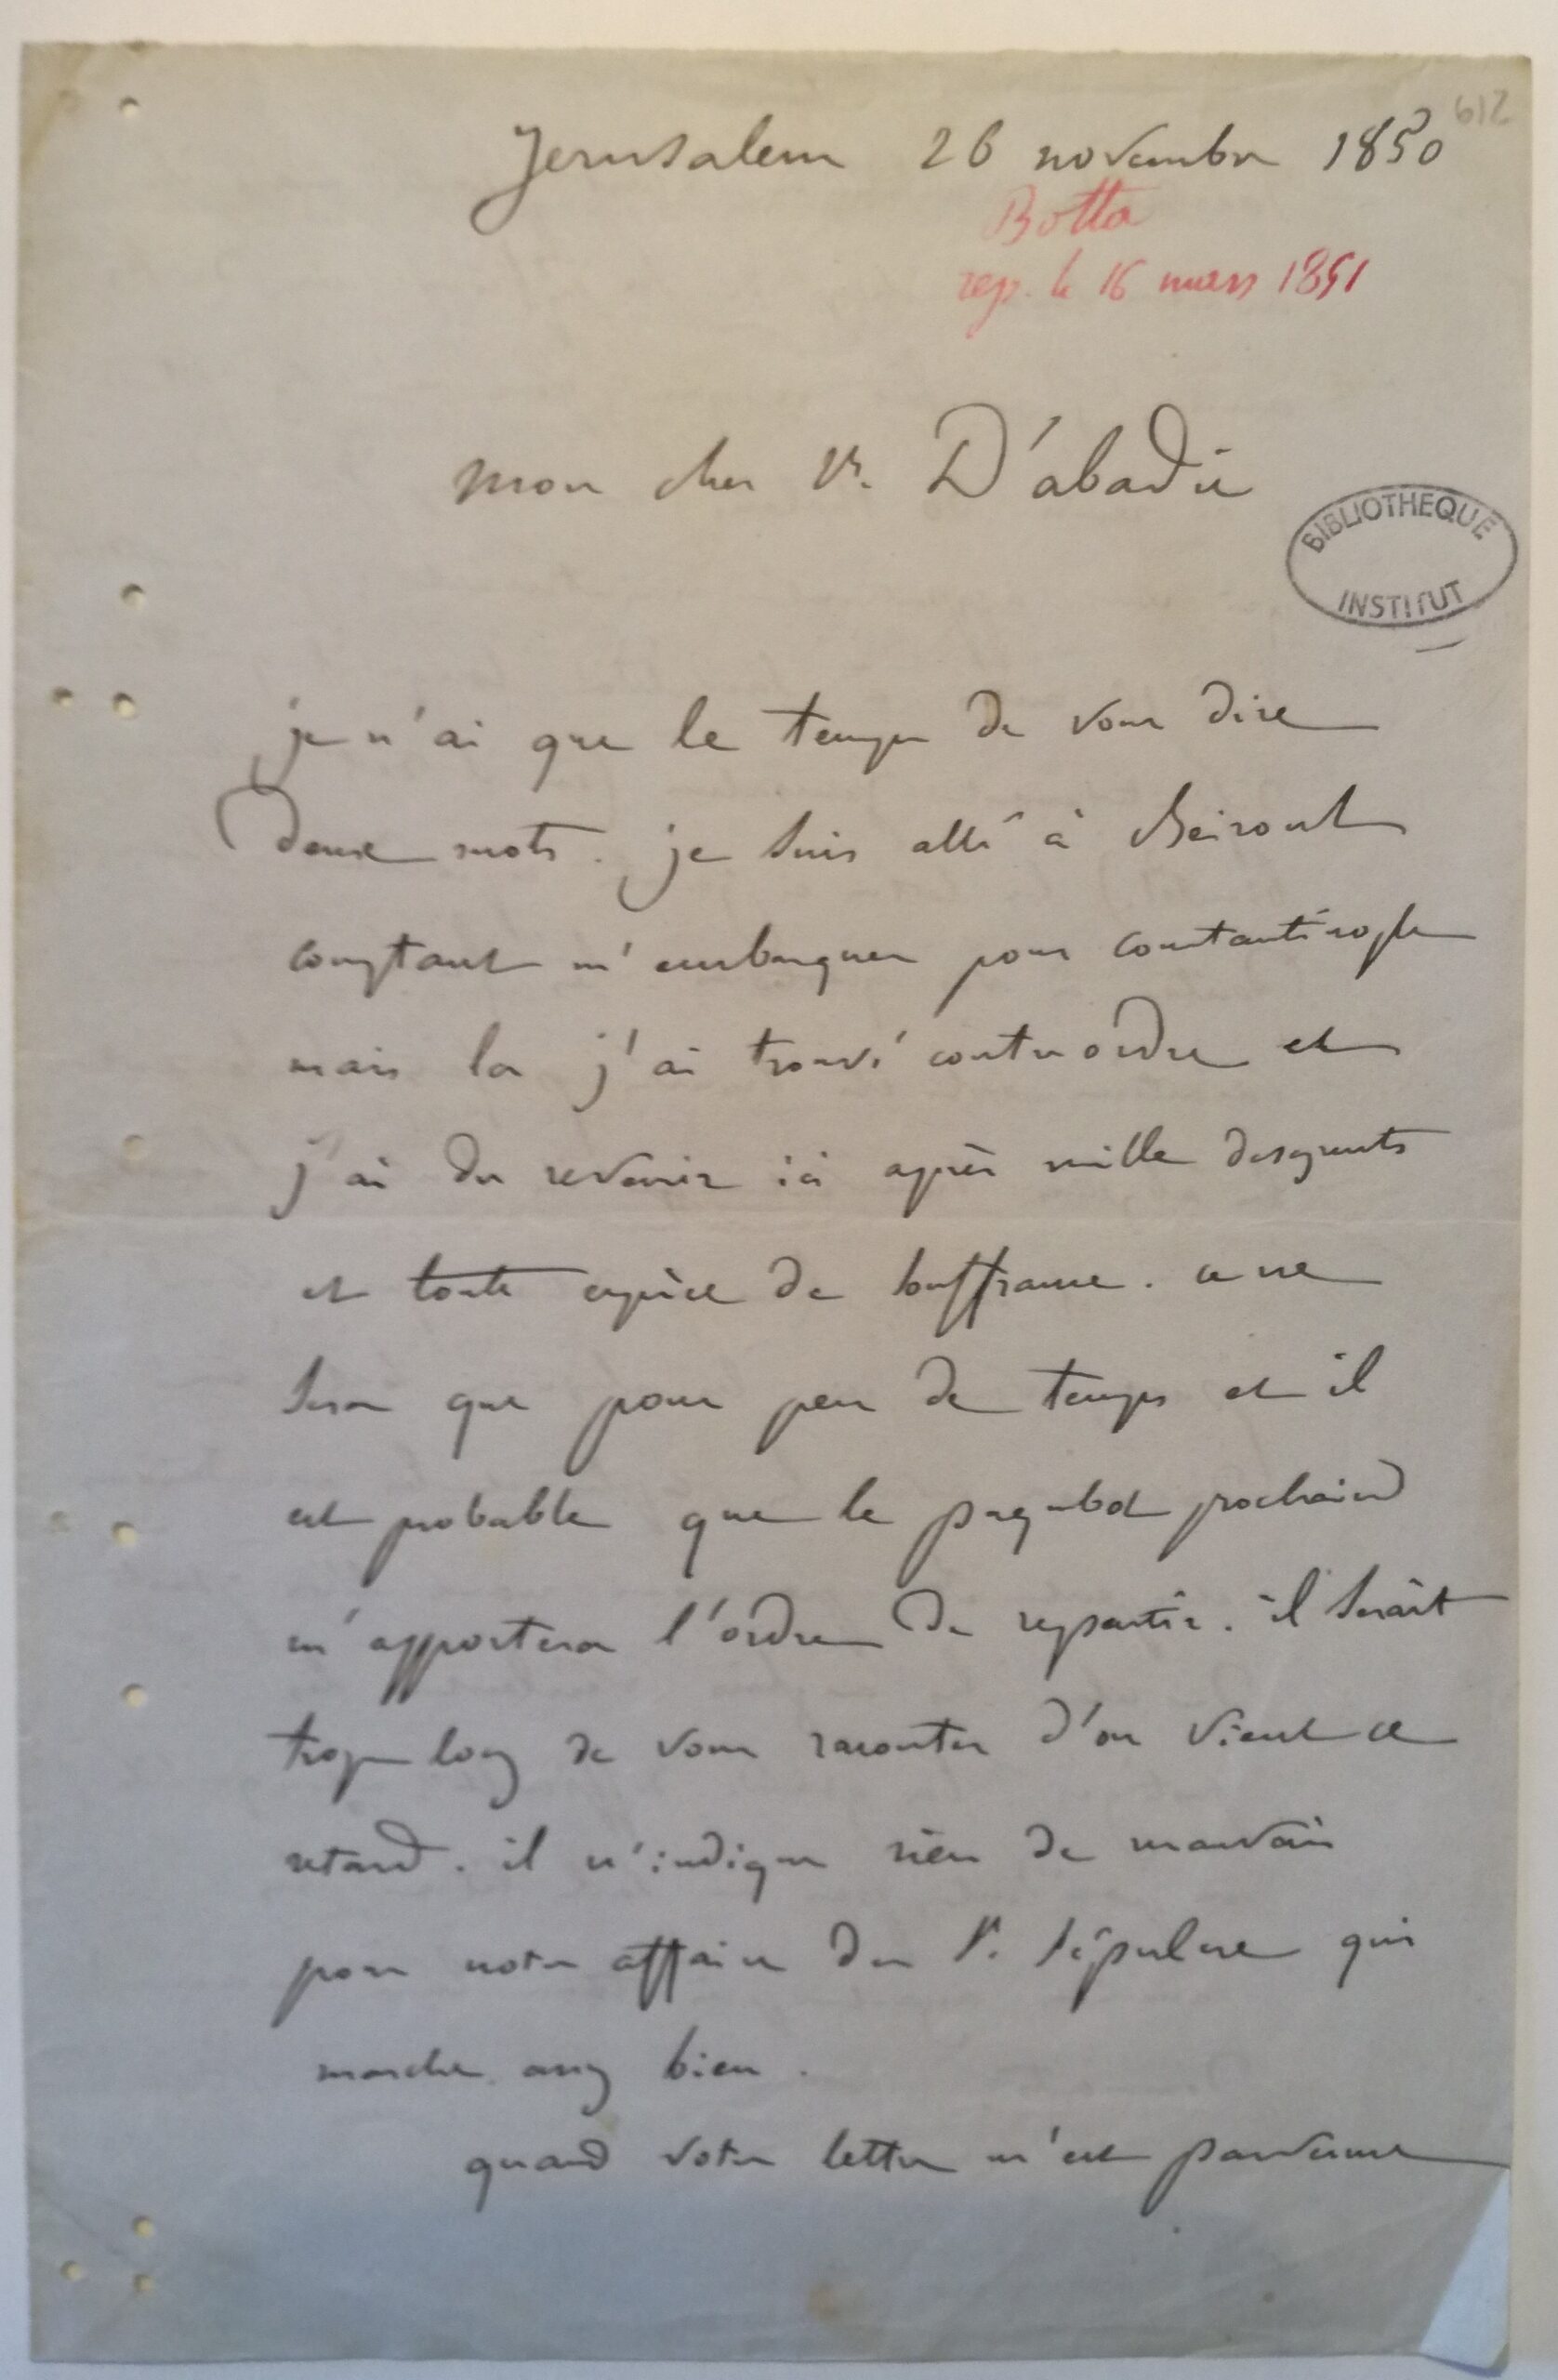 612
Jerusalem 26 novembre 1850
Botta
rep. le 16 mars 1851
mon cher Mr. D'abadie
BIBLIOTHEQUE
INSTITUT
je n'ai que le temps de vous dire
deux mots. je suis allé à Beirout
comptant m'embarquer pour constantinople
mais la j'ai trouvé contreordre et
j'ai du revenir ici après mille desagrents
et toute espèce de souffrance. ce ne
sera que pour peu de temps et il
est probable que le paquebot prochain
m'apportera l'ordre de repartir. il serait
trop long de vous raconter d'ou vient ce
retard. il n'indique rien de mauvais
pour notre affaire du St. Sépulcre qui
marche assez bien.
quand votre lettre m'est parvenue